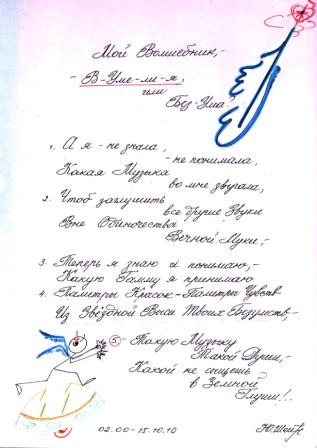 Мой Волшебник,-
- В-Уме-ли-я,
или
Без-Ума?
1. А я - не знала,
- не понимала,
Какая Музыка
во мне звучала,
2. Чтоб заглушить
все другие Звуки
Вне Одиночества
Вечной Муки,-
3. Теперь я знаю и понимаю,-
Какую Гамму я принимаю
4. Палитры Красок-Палитры Чувств
Из Звёздной Выси Твоих Безумств,-
5- Такую Музыку
Такой Души,-
Какой не сыщешь
в Земной
Глуши!..
02.00-15.10.10